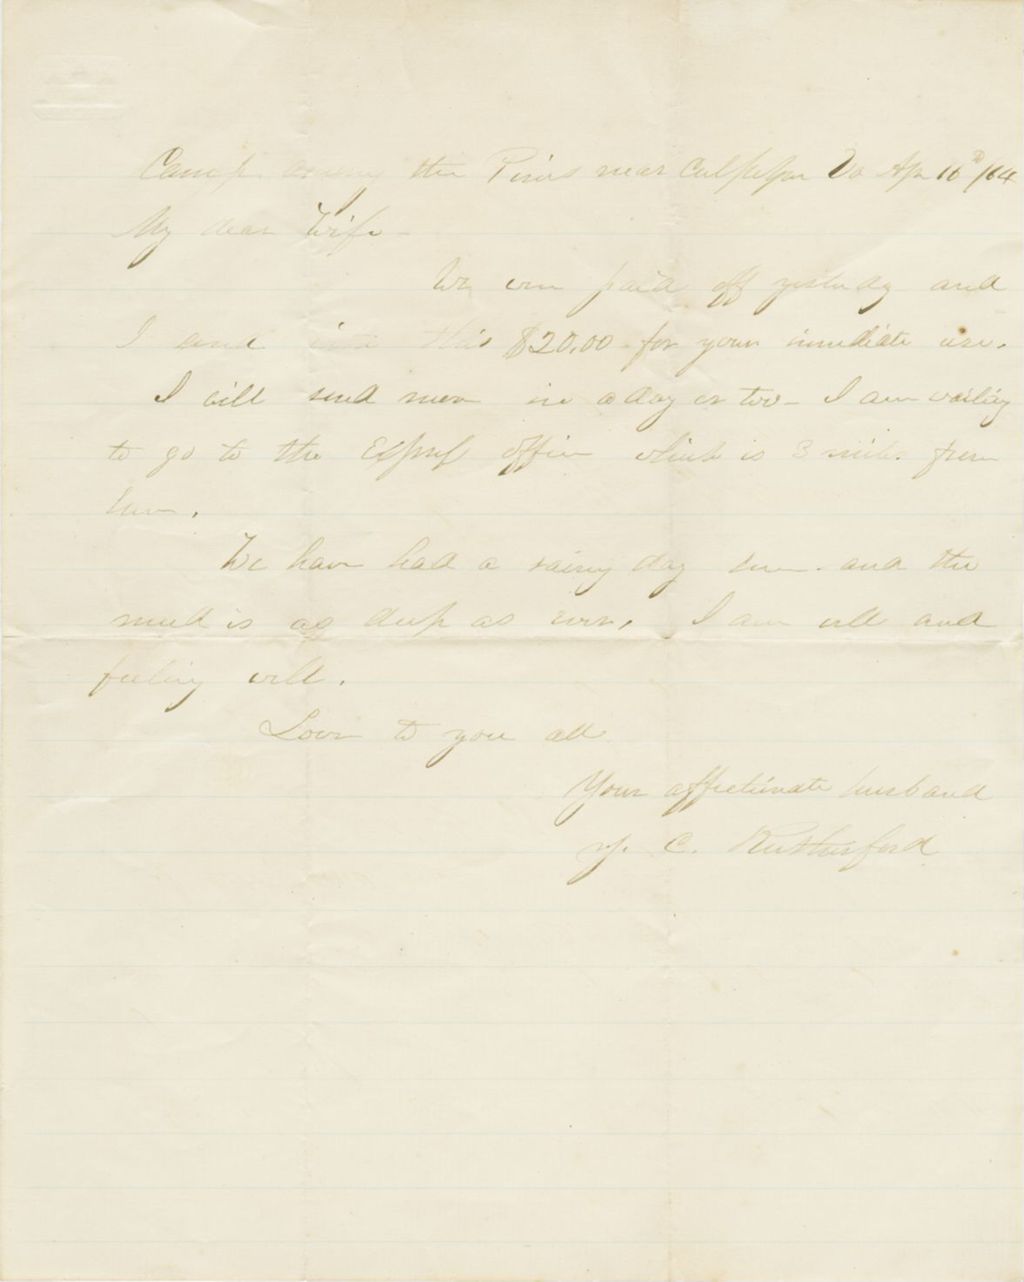 Camp among the Pines near Culpeper Va Apr 16th /64
My dear Wife -
We were paid off yesterday and
I send in this $20.00 for your immediate use.
I will send more in a day or two - I am waiting
to go to the Express office which is 3 miles from
here.
We have had a rainy day here - and the
mud is as deep as ever. I am well and
feeling well.
Love to you all
Your affectionate husband
J. C. Rutherford